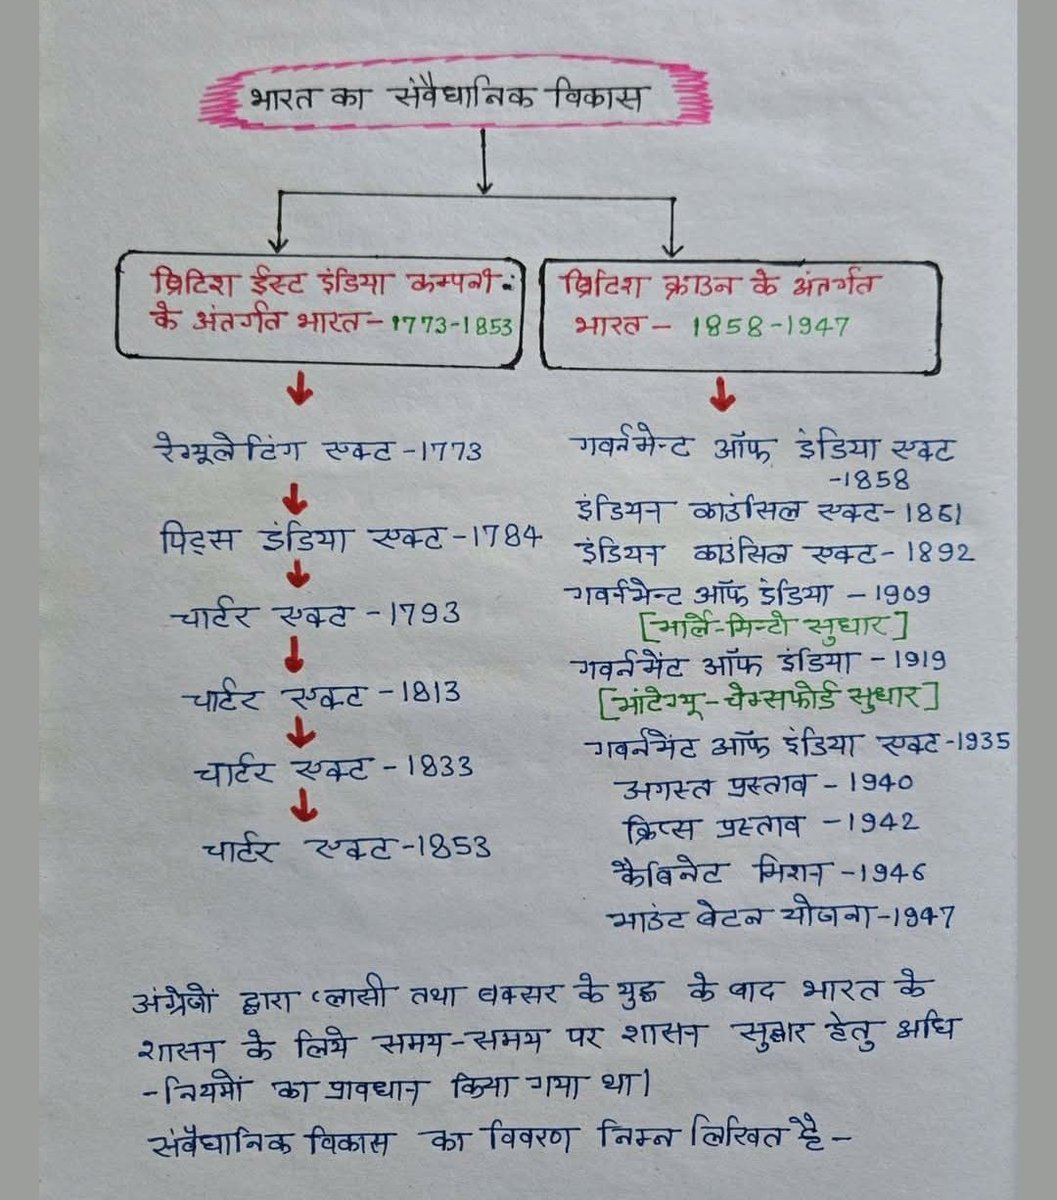 भारत का संवैधानिक विकास
ब्रिटिश ईस्ट इंडिया कम्पनी
के अंतर्गत भारत - 1773-1853
ब्रिटिश क्राउन के अंतर्गत
भारत - 1858-1947
रेग्यूलेटिंग एक्ट -1773
पिट्स इंडिया एक्ट -1784
चार्टर एक्ट -1793
चार्टर एक्ट -1813
चार्टर एक्ट -1833
चार्टर एक्ट -1853
गवर्नमेन्ट ऑफ इंडिया एक्ट
-1858
इंडियन काउंसिल एक्ट- 1861
इंडियन काउंसिल एक्ट- 1892
गवर्नमेन्ट ऑफ इंडिया - 1909
[मार्ले-मिन्टो सुधार]
गवर्नमेंट ऑफ इंडिया - 1919
[मांटेग्यू-चेम्सफोर्ड सुधार]
गवर्नमेंट ऑफ इंडिया एक्ट -1935
अगस्त प्रस्ताव - 1940
क्रिप्स प्रस्ताव - 1942
कैबिनेट मिशन -1946
माउंट बेटन योजना-1947
अंग्रेजों द्वारा प्लासी तथा बक्सर के युद्ध के बाद भारत के
शासन के लिये समय-समय पर शासन सुधार हेतु अधि
-नियमों का प्रावधान किया गया था।
संवैधानिक विकास का विवरण निम्न लिखित है -